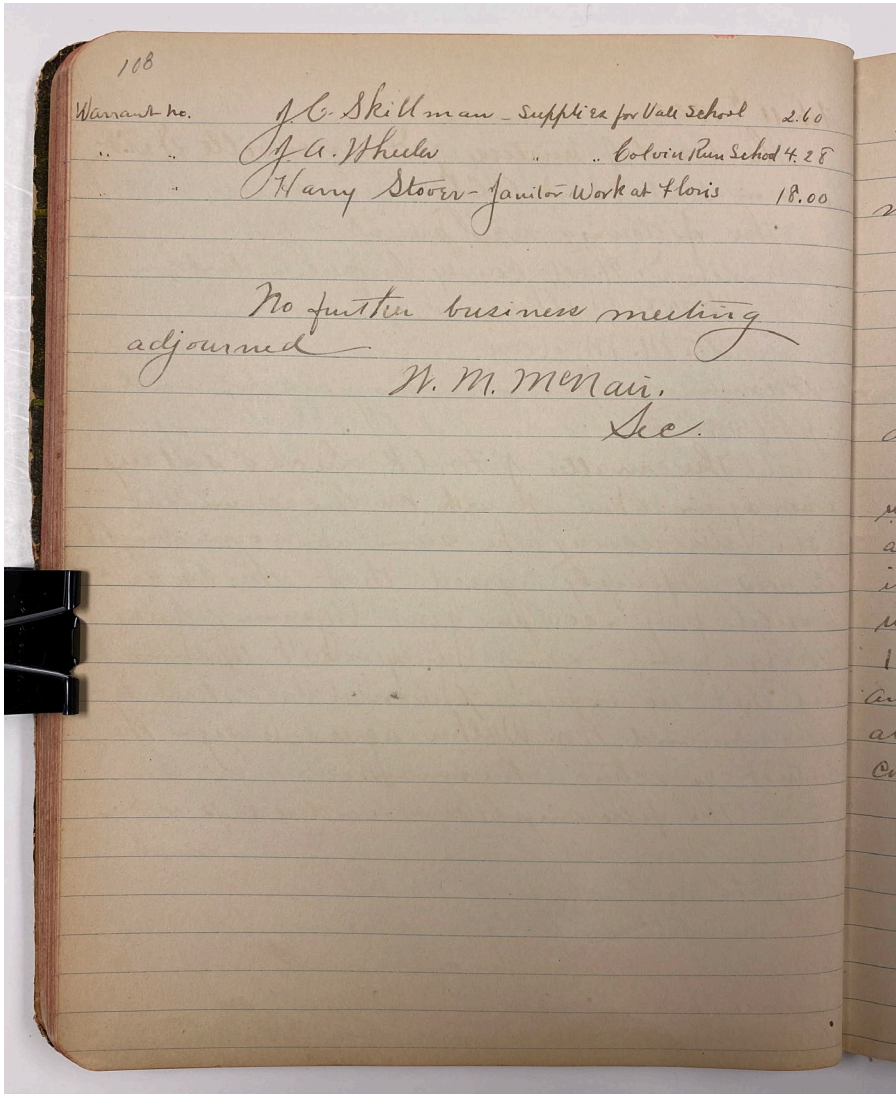 108
Warrant no. J. C. Skillman - Supplies for Vale School 2.60
" " J. A. Wheeler " " Colvin Run School 4.28
" " Harry Stover - Janitor Work at Floris 18.00
No further business meeting
adjourned
W. M. McNair.
Sec.